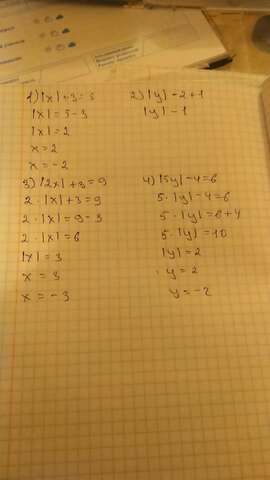 1) |x| + 3 = 5
|x| = 5 - 3
|x| = 2
x = 2
x = -2
2) |y| - 2 + 1
|y| - 1
3) |2x| + 3 = 9
2 · |x| + 3 = 9
2 · |x| = 9 - 3
2 · |x| = 6
|x| = 3
x = 3
x = -3
4) |5y| - 4 = 6
5 · |y| - 4 = 6
5 · |y| = 6 + 4
5 · |y| = 10
|y| = 2
y = 2
y = -2